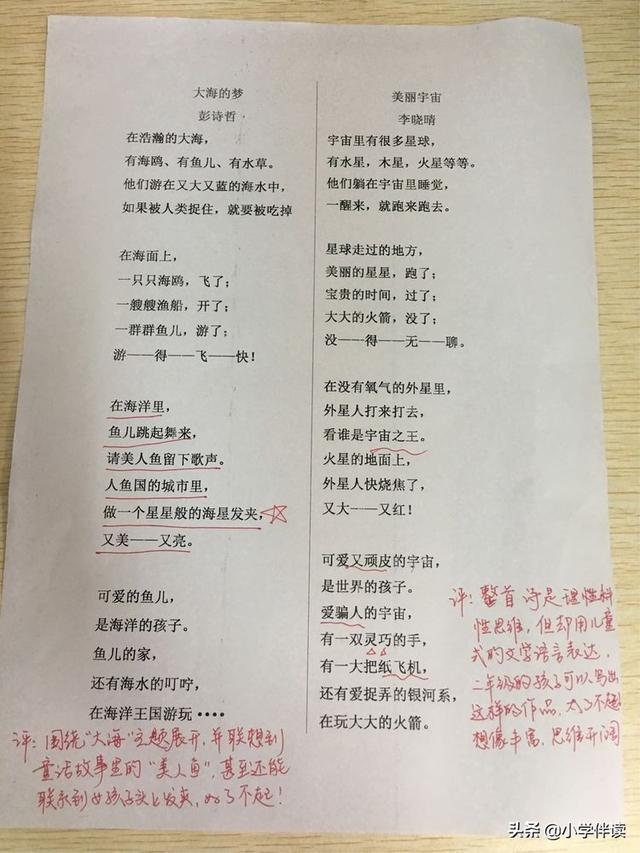 大海的梦
彭诗哲
在浩瀚的大海，
有海鸥、有鱼儿、有水草。
他们游在又大又蓝的海水中，
如果被人类捉住，就要被吃掉
在海面上，
一只只海鸥，飞了；
一艘艘渔船，开了；
一群群鱼儿，游了；
游——得——飞——快！
在海洋里，
鱼儿跳起舞来，
请美人鱼留下歌声。
人鱼国的城市里，
做一个星星般的海星发夹，
又美——又亮。
可爱的鱼儿，
是海洋的孩子。
鱼儿的家，
还有海水的叮咛，
在海洋王国游玩····
评：围绕“大海”主题展开，并联想到
童话故事里的“美人鱼”，甚至还能
联系到女孩子头上发夹，好了不起！
美丽宇宙
李晓晴
宇宙里有很多星球，
有水星，木星，火星等等。
他们躺在宇宙里睡觉，
一醒来，就跑来跑去。
星球走过的地方，
美丽的星星，跑了；
宝贵的时间，过了；
大大的火箭，没了；
没——得——无——聊。
在没有氧气的外星里，
外星人打来打去，
看谁是宇宙之王。
火星的地面上，
外星人快烧焦了，
又大——又红！
可爱又顽皮的宇宙，
是世界的孩子。
爱骗人的宇宙，
有一双灵巧的手，
有一大把纸飞机，
还有爱捉弄的银河系，
在玩大大的火箭。
评：整首诗是理性科
性思维，但却用儿童
式的文学语言表达，
二年级的孩子可以写出
这样的作品，太了不起
想像丰富，思维开阔
头条 @小学伴读